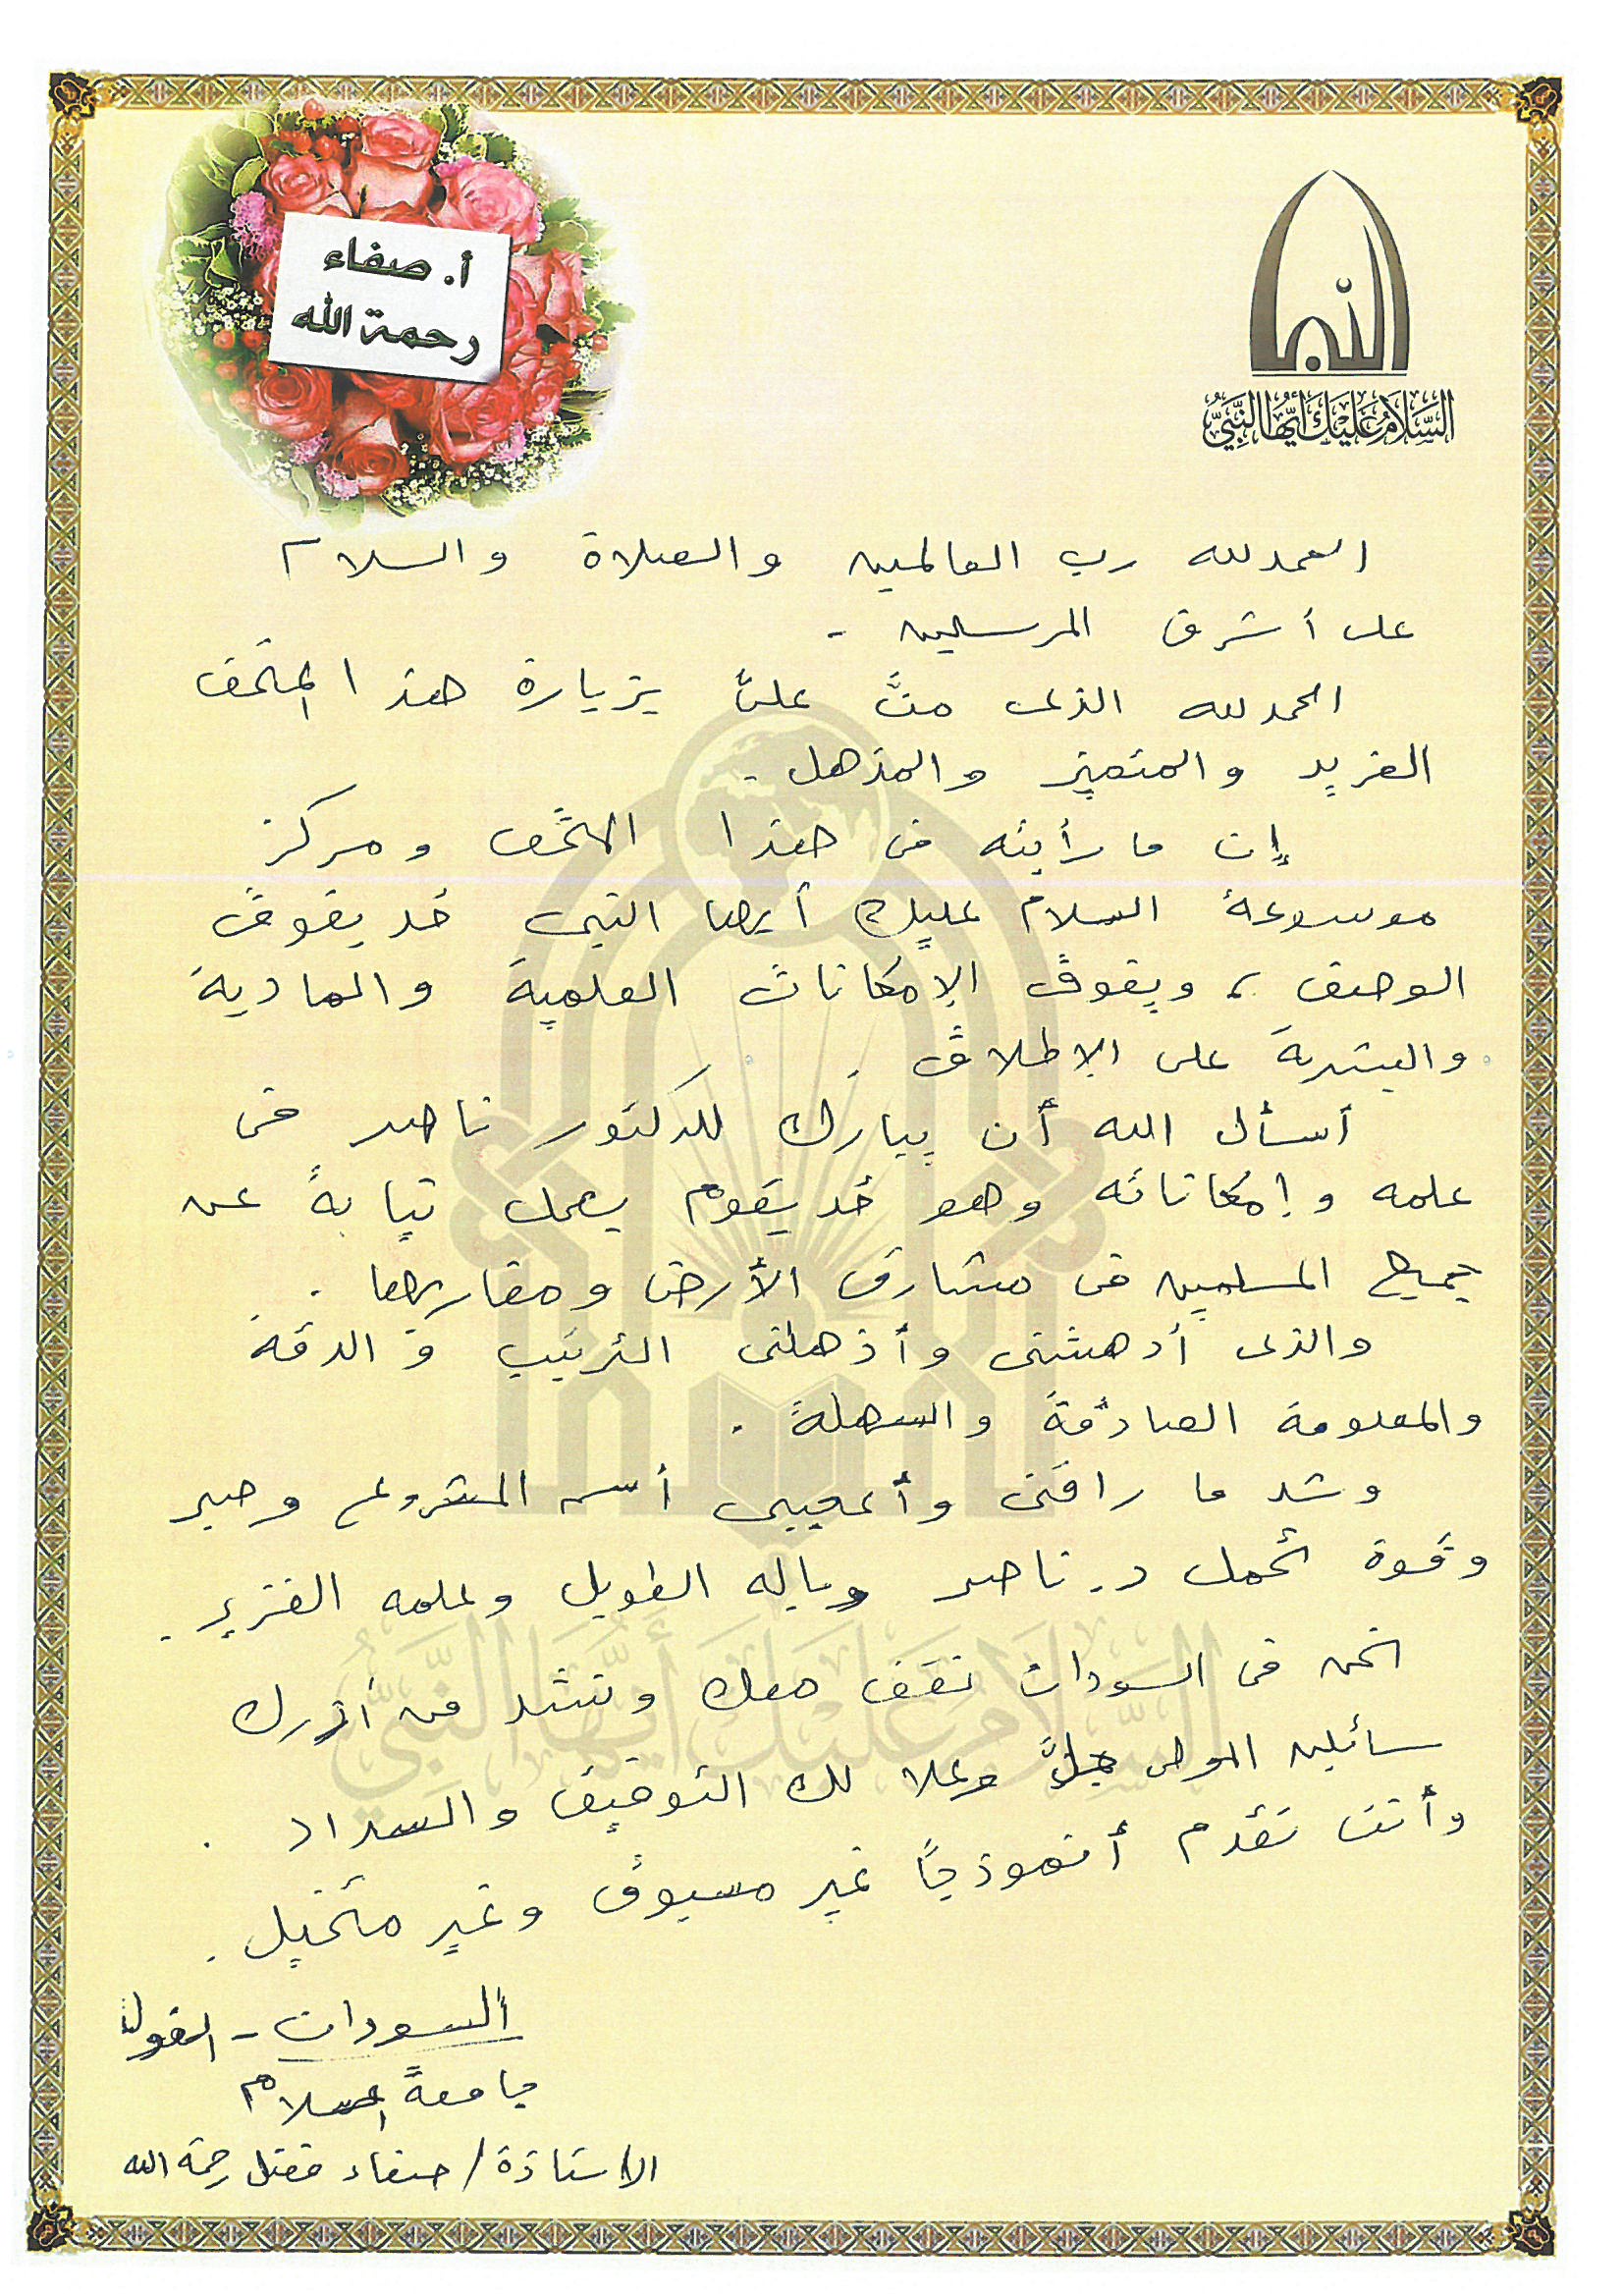 أ. صفاء
رحمة الله
السَّلَامُ عَلَيْكَ أَيُّهَا النَّبِيُّ
الحمد لله رب العالمين والصلاة والسلام
على أشرف المرسلين -
الحمد لله الذى منَّ علىَّ بزيارة هذا المتحف
الفريد والمتميز والمذهل -
إن ما رأيته فى هذا المتحف ومركز
موسوعة السلام عليك أيها النبى قد يفوق
الوصف، ويفوق الإمكانات العلمية والمادية
والبشرية على الإطلاق .
أسأل الله أن يبارك للدكتور ناصر فى
علمه وإمكاناته وهو قد يقوم بعمل نيابةً عن
جميع المسلمين فى مشارق الأرض ومغاربها .
والذى أدهشنى وأذهلنى الترتيب والدقة
والمعلومة الصادقة والسهلة .
وشد ما راقنى وأعجبنى أسم المشروع وصبر
وقوة تحمل د. ناصر وباله الطويل وعلمه الغزير .
نحن فى السودان نقف معك ونشد من أزرك
سائلين المولى جلَّ وعلا لك التوفيق والسداد .
وأنت تقدم أنموذجاً غير مسبوق وغير متخيل .
السودان -
جامعة
الاستاذة / صفاء رحمة الله